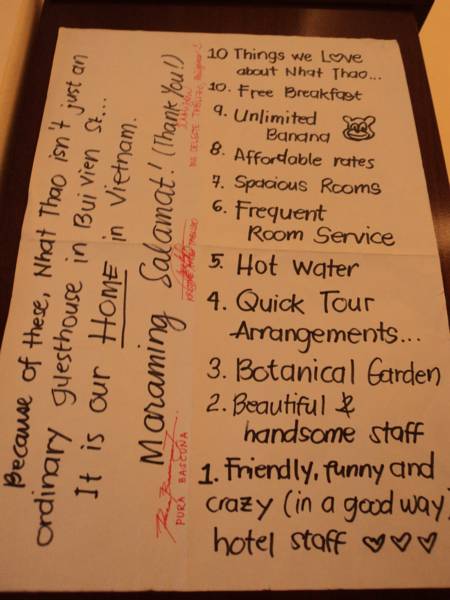 10 Things we Love
about Nhat Thao...
10. Free Breakfast
9. Unlimited
Banana
8. Affordable rates
7. Spacious Rooms
6. Frequent
Room Service
5. Hot Water
4. Quick Tour
Arrangements...
3. Botanical Garden
2. Beautiful &
handsome staff
1. Friendly, funny and
crazy (in a good way)
hotel staff ♡♡♡
Because of these, Nhat Thao isn't just an
ordinary guesthouse in Bui vien St...
It is our HOME in Vietnam.
Maraming Salamat! (Thank You!)
PURA BASCUNA